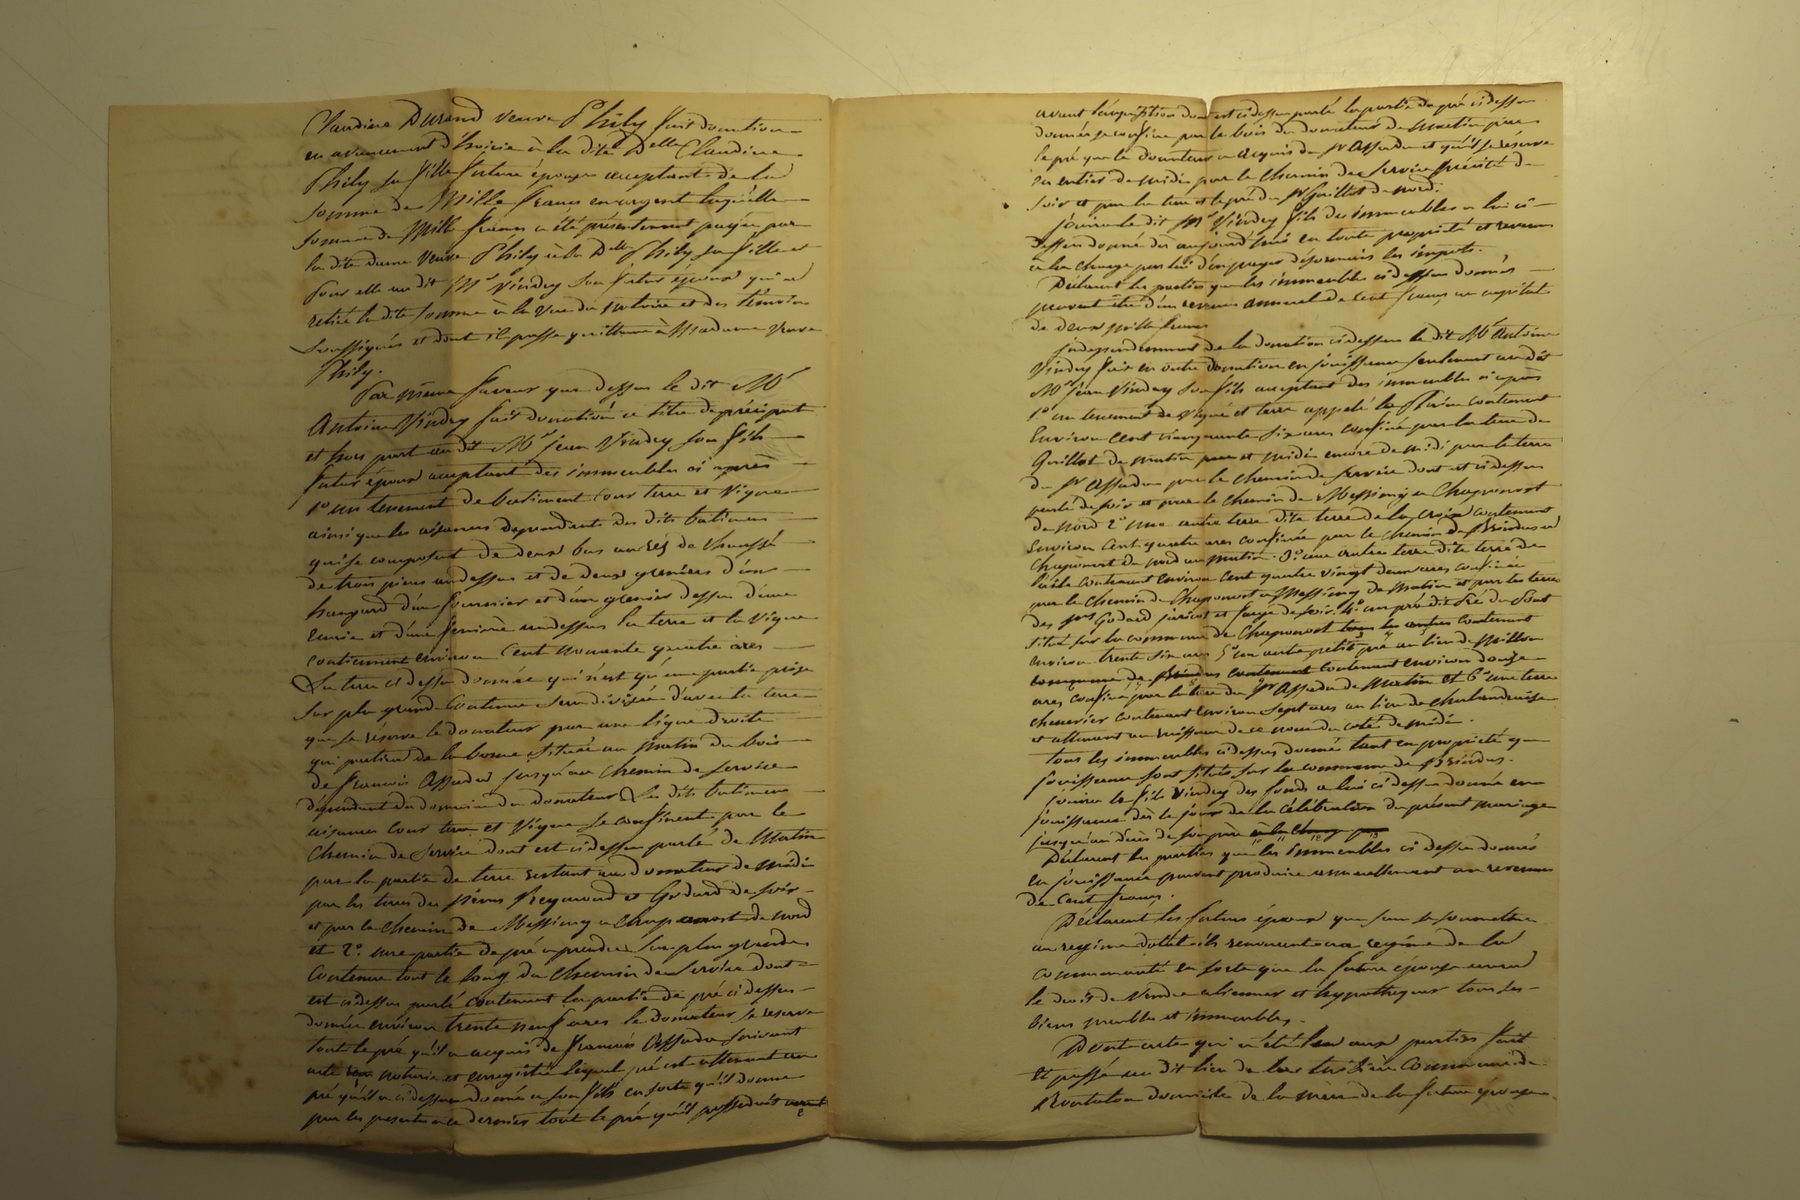 Claudine Durand veuve Phily fait donation
en avancement d'hoirie à la dite Delle Claudine
Phily sa fille future épouse acceptante de la
somme de Mille francs en argent laquelle
somme de Mille francs a été présentement payée par
la dite dame veuve Phily à la Delle Phily sa fille et
pour elle au dit Mr Vindry son futur époux qui a
retiré la dite somme à la vue du notaire et des témoins
soussignés et dont il passe quittance à Madame veuve
Phily.
Par même faveur que dessus le dit Mr
Antoine Vindry fait donation à titre de préciput
et hors part au dit Mr Jean Vindry son fils
futur époux acceptant des immeubles ci après
1o un tenement de batiment cour terre et vigne
ainsi que les aisances dependants des dits batimens
qui se composent de deux bas au rez de chaussé
de trois pieces au dessus et de deux greniers d'un
hangard d'un fournier et d'un grenier dessus d'une
écurie et d'une fenière au dessus la terre et la vigne
contiennent environ cent nonante quatre ares
La terre ci dessus donnée qui n'est qu'une partie prise
sur plus grande contenue sera divisée d'avec la terre
que se réserve le donateur par une ligne droite
qui partira de la borne située au matin du bois
de francois Assada jusqu'au chemin de service
dépendant du domaine du donateur Les dits batimens
aisances cour terre et vigne se confinent par le
chemin de service dont est ci dessus parlé de Matin
par la partie de terre restant au donateur de midi
par les terres des sieurs Reymond et Godard de soir
et par le chemin de Messimy a Chaponost de nord
et 2o une partie de pré a prendre sur plus grande
contenue tout le long du chemin de service dont
est ci dessus parlé contenant la partie de pré ci dessus
donnée environ trente neuf ares le donateur se reserve
tout le pré qu'il a acquis de francois Assada suivant
acte notarié et enregistré lequel pré est attenant au
pré qu'il a ci dessus donné a son fils en sorte qu'il donne
par les presentes a ce dernier tout le pré qu'il possedait avant
avant l'acquisition dont est ci dessus parlé la partie de pré ci dessus
donnée se confine par le bois du donateur de Matin par
le pré que le donateur a acquis du Sr Assada et qu'il se réserve
en entier de midi par le chemin de service précité de
soir et par la terre et le pré du Sr Guillot de nord.
Jouira le dit Mr Vindry fils des immeubles a lui ci
dessus donné dès aujourd'hui en toute propriété et revenus
a la charge par lui d'en payer désormais les impots.
Déclarent les parties que les immeubles ci dessus donnés
peuvent être d'un revenu annuel de cent francs au capital
de deux mille francs
Independemment de la donation ci dessus le dit Mr Antoine
Vindry fait en outre donation en jouissance seulement au dit
Mr Jean Vindry son fils acceptant des immeubles ci après
1o un tenement de vigne et terre appelé la Plaine contenant
environ cent cinquante six ares confiné par la terre de
Guillot de matin et midi encore de midi par la terre
du Sr Assada par le chemin de service dont est ci dessus
parlé de soir et par le chemin de Messimy a Chaponost
de nord 2o une autre terre dite terre de la croix contenant
environ cent quatre ares confinée par le chemin de Brindas a
Chaponost de nord au matin. 3o une autre terre dite terre de
contenant environ cent quatre vingt deux ares confinée
par le chemin de Chaponost a Messimy de Matin et par les terres
des Srs Godard et de soir. 4o un pré dit Pré du Pont
situé sur la commune de Chaponost contenant
environ trente six ares 5o un autre petit pré au lieu de
commune de contenant environ douze
ares confiné par la terre du Sr Assada de Matin et 6o une terre
chenevier contenant environ sept ares au lieu de
et attenant au ruisseau de ce nom du coté de midi.
tous les immeubles ci dessus donnés tant en propriété qu'en
jouissance sont situés sur la commune de Brindas.
Jouira le fils Vindry des fonds a lui ci dessus donné en
jouissance dès le jour de la célébration du présent mariage
jusqu'au décès de son père à la charge par
Déclarent les parties que les immeubles ci dessus donnés
en jouissance peuvent produire annuellement un revenu
de cent francs.
Déclarent les futurs époux que sans se soumettre
au regime dotal ils renoncent au regime de la
communauté en sorte que la future épouse aura
le droit de vendre aliener et hypothequer tous ses
biens meubles et immeubles.
Dont acte qui a été lu aux parties fait
et passé au dit lieu de commune de
domicile de la mère de la future épouse